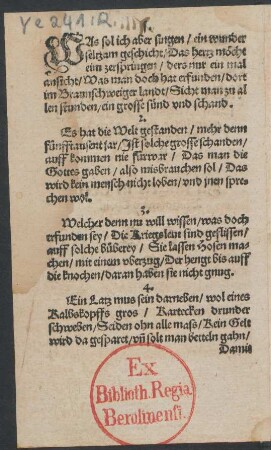 Ye 241 R.
WAs sol ich aber singen / ein wunder
seltzam geschicht / Das hertz möcht
eim zerspringen / ders nur ein mal
ansicht / Was man doch hat erfunden / dort
im Braunschweiger landt / Sicht man zu al
len stunden / ein grosse sünd vnd schand.
2.
Es hat die Welt gestanden / mehr denn
fünfftausent jar / Ist solche grosse schanden /
auff kommen nie fürwar / Das man die
Gottes gaben / also misbrauchen sol / Das
wird kein mensch nicht loben / vnd jnen spre
chen wol.
3.
Welcher denn nu will wissen / was doch
erfunden sey / Die Kriegsleut sind geflissen /
auff solche büberey / Sie lassen Hosen ma-
chen / mit einem vberzug / Der hengt bis auff
die knochen / daran haben sie nicht gnug.
4.
Ein Latz mus sein darneben / wol eines
Kalbskopffs gros / Kartecken drunder
schweben / Seiden ohn alle mass / Kein Gelt
wird da gesparet / vñ solt man betteln gahn /
Damit
Ex
Biblioth. Regia
Berolinensi.